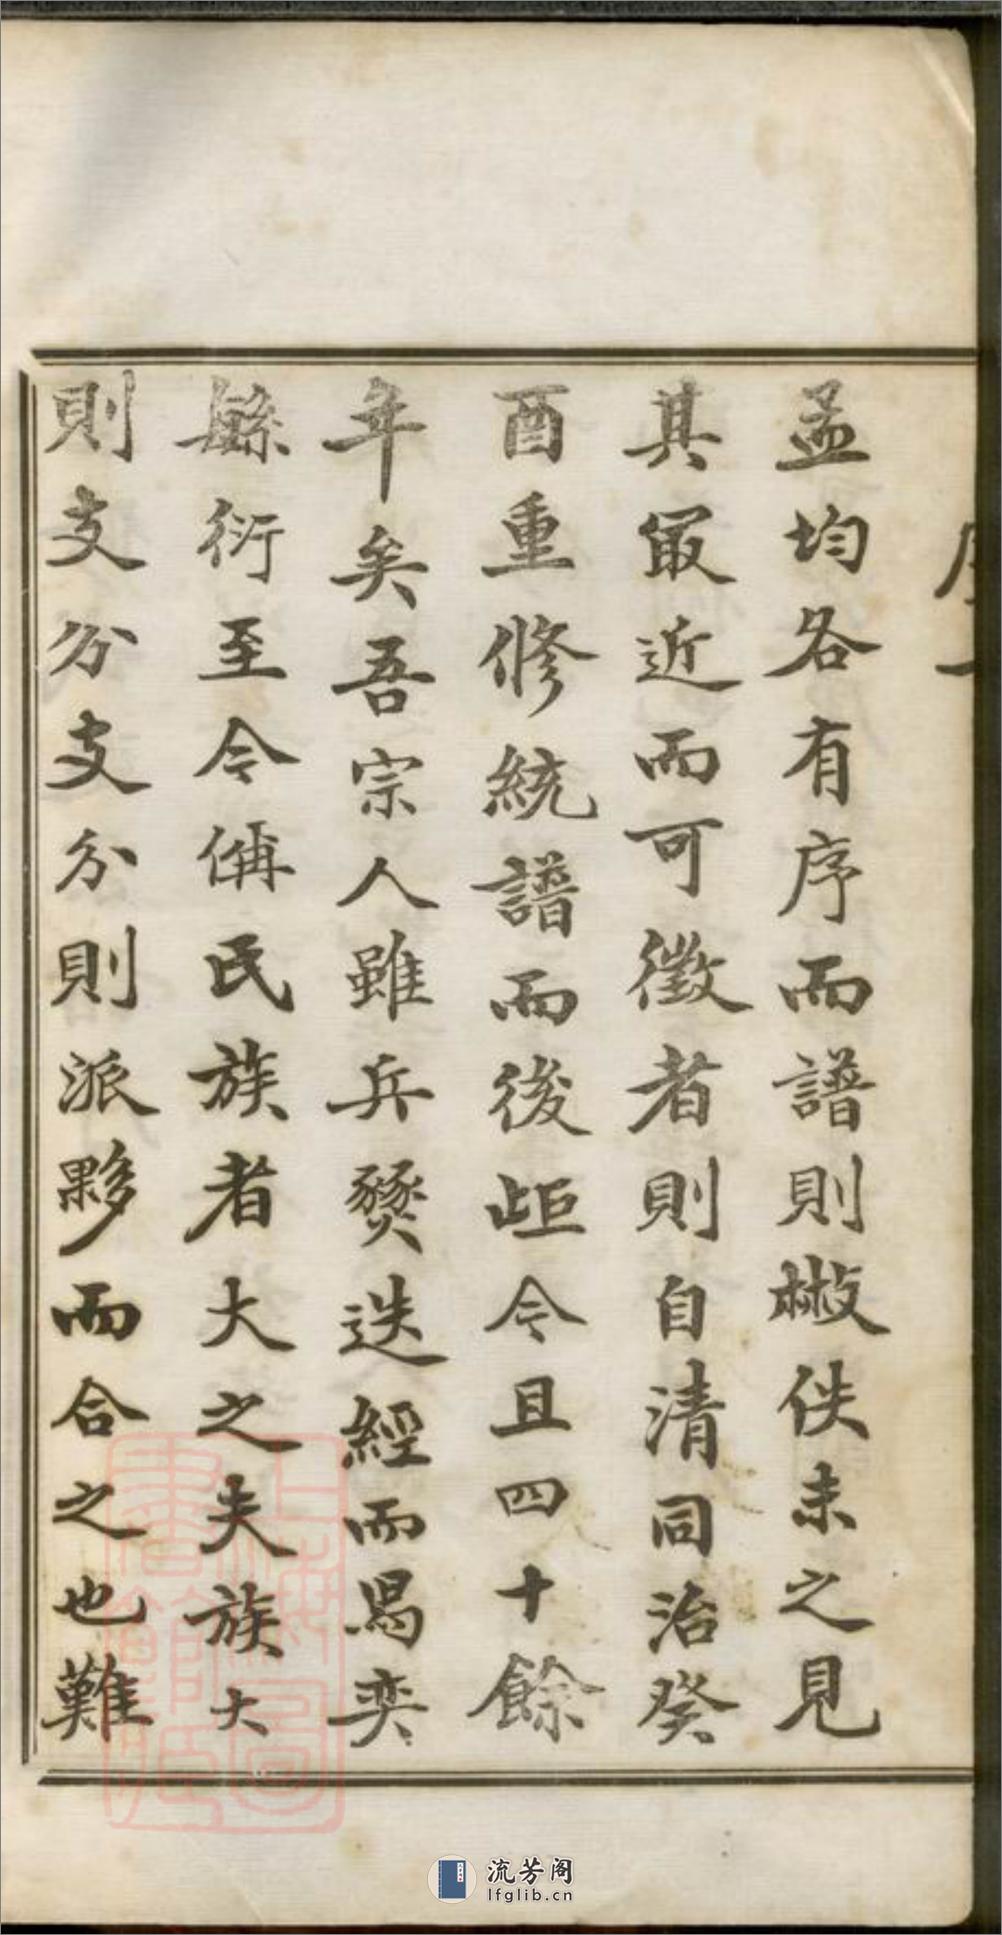 孟均各有序而譜則散佚未之見
其冣近而可徵者則自清同治癸
酉重修統譜而後岠今且四十餘
年矣吾宗人雖兵燹迭經而曷奕
緐衍至今偁民族者大之夫族大
則支分支分則派夥而合之也難
上海圖書館藏
流芳阁
lfglib.cn